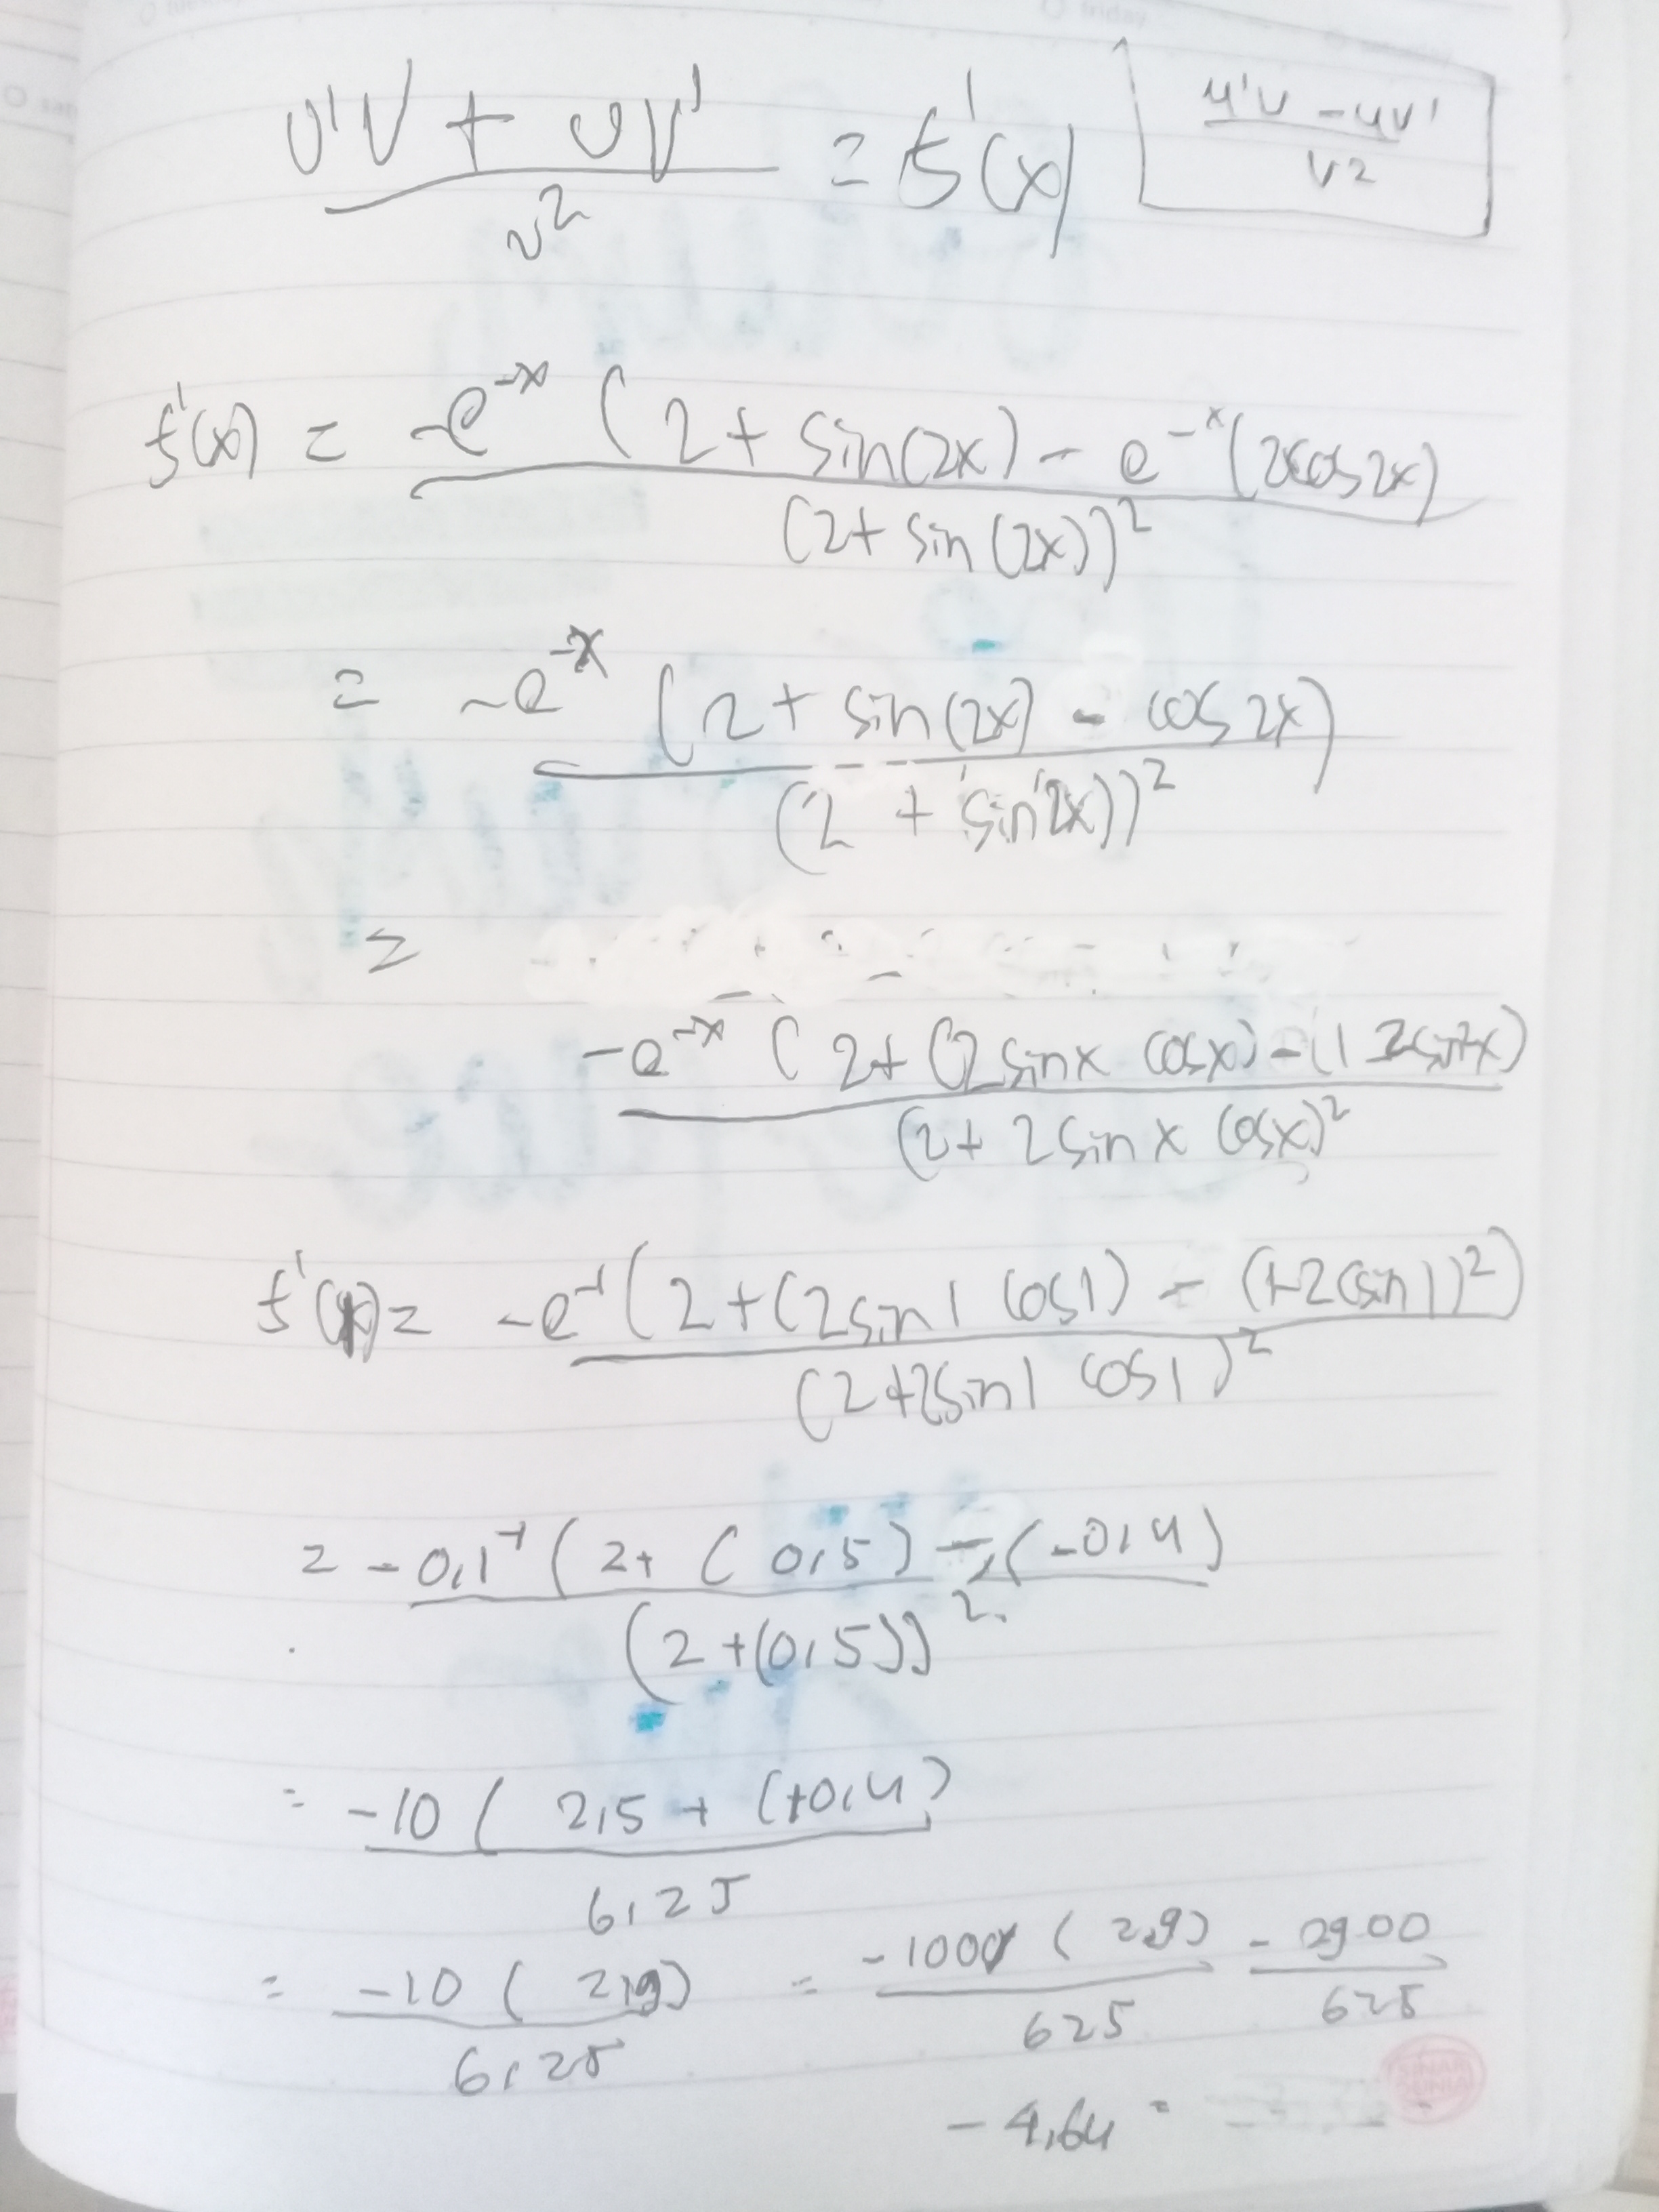 u'v + uv' / v² = f'(x)   u'v - uv' / v²
f'(x) = -e^-x (2 + sin(2x) - e^-x (2cos 2x) / (2 + sin (2x))²
= -e^-x (2 + sin(2x) - cos 2x) / (2 + sin 2x))²
=
-e^-x (2 + (2 sin x cos x) - (1 2sin²x) / (2 + 2 sin x cos x)²
f'(1) = -e^-1 (2 + (2 sin 1 cos 1) - (1-2(sin 1)²) / (2+2sin 1 cos 1)²
= -0,1^-1 (2 + (0,5) - (-0,4) / (2 + (0,5))²
= -10 ( 2,5 + (+0,4) / 6,25
= -10 ( 2,9) / 6,25 = -1000 ( 2,9) / 625 - 2900 / 625
-4,64 =